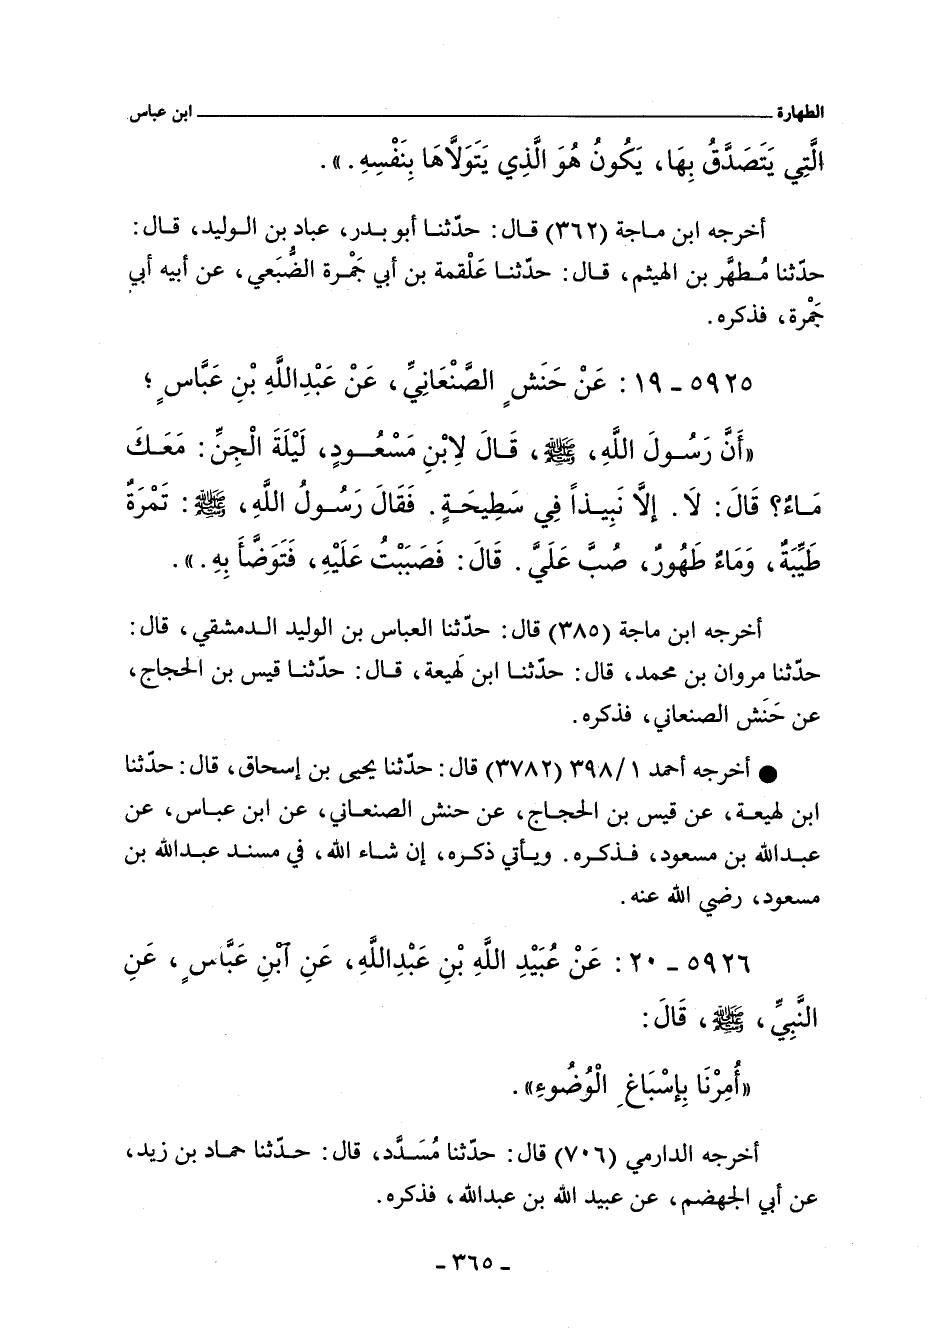 الطهارة ــــــــــــــــــــــــــــــــــــــــ ابن عباس
الَّتِي يَتَصَدَّقُ بِهَا، يَكُونُ هُوَ الَّذِي يَتَوَلَّاهَا بِنَفْسِهِ.».
أخرجه ابن ماجة (٣٦٢) قال: حدّثنا أبو بدر، عباد بن الوليد، قال:
حدّثنا مُطهَّر بن الهيثم، قال: حدّثنا عَلْقمة بن أبي جَمْرة الضُّبَعي، عن أبيه أبي
جَمْرة، فذكره.
٥٩٢٥ - ١٩: عَنْ حَنَشٍ الصَّنْعَانِيِّ، عَنْ عَبْدِاللَّهِ بْنِ عَبَّاسٍ؛
«أَنَّ رَسُولَ اللَّهِ، ﷺ، قَالَ لِابْنِ مَسْعُودٍ، لَيْلَةَ الْجِنِّ: مَعَكَ
مَاءٌ؟ قَالَ: لَا. إِلَّا نَبِيذاً فِي سَطِيحَةٍ. فَقَالَ رَسُولُ اللَّهِ، ﷺ: تَمْرَةٌ
طَيِّبَةٌ، وَمَاءٌ طَهُورٌ، صُبَّ عَلَيَّ. قَالَ: فَصَبَبْتُ عَلَيْهِ، فَتَوَضَّأَ بِهِ.».
أخرجه ابن ماجة (٣٨٥) قال: حدّثنا العباس بن الوليد الدمشقي، قال:
حدّثنا مروان بن محمد، قال: حدّثنا ابن لَهيعة، قال: حدّثنا قيس بن الحجاج،
عن حَنَش الصنعاني، فذكره.
● أخرجه أحمد ٣٩٨/١ (٣٧٨٢) قال: حدّثنا يحيى بن إسحاق، قال: حدّثنا
ابن لهيعة، عن قيس بن الحجاج، عن حنش الصنعاني، عن ابن عباس، عن
عبدالله بن مسعود، فذكره. ويأتي ذكره، إن شاء الله، في مسند عبدالله بن
مسعود، رضي الله عنه.
٥٩٢٦ - ٢٠: عَنْ عُبَيْدِ اللَّهِ بْنِ عَبْدِاللَّهِ، عَنِ ٱبْنِ عَبَّاسٍ، عَنِ
النَّبِيِّ، ﷺ، قَالَ:
«أُمِرْنَا بِإِسْبَاغِ الْوُضُوءِ».
أخرجه الدارمي (٧٠٦) قال: حدّثنا مُسَدَّد، قال: حدّثنا حماد بن زيد،
عن أبي الجهضم، عن عبيد الله بن عبدالله، فذكره.
- ٣٦٥ -